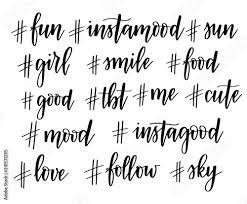 #fun #instamood #sun
#girl #smile #food
#good #tbt #me #cute
#mood #instagood
#love #follow #sky